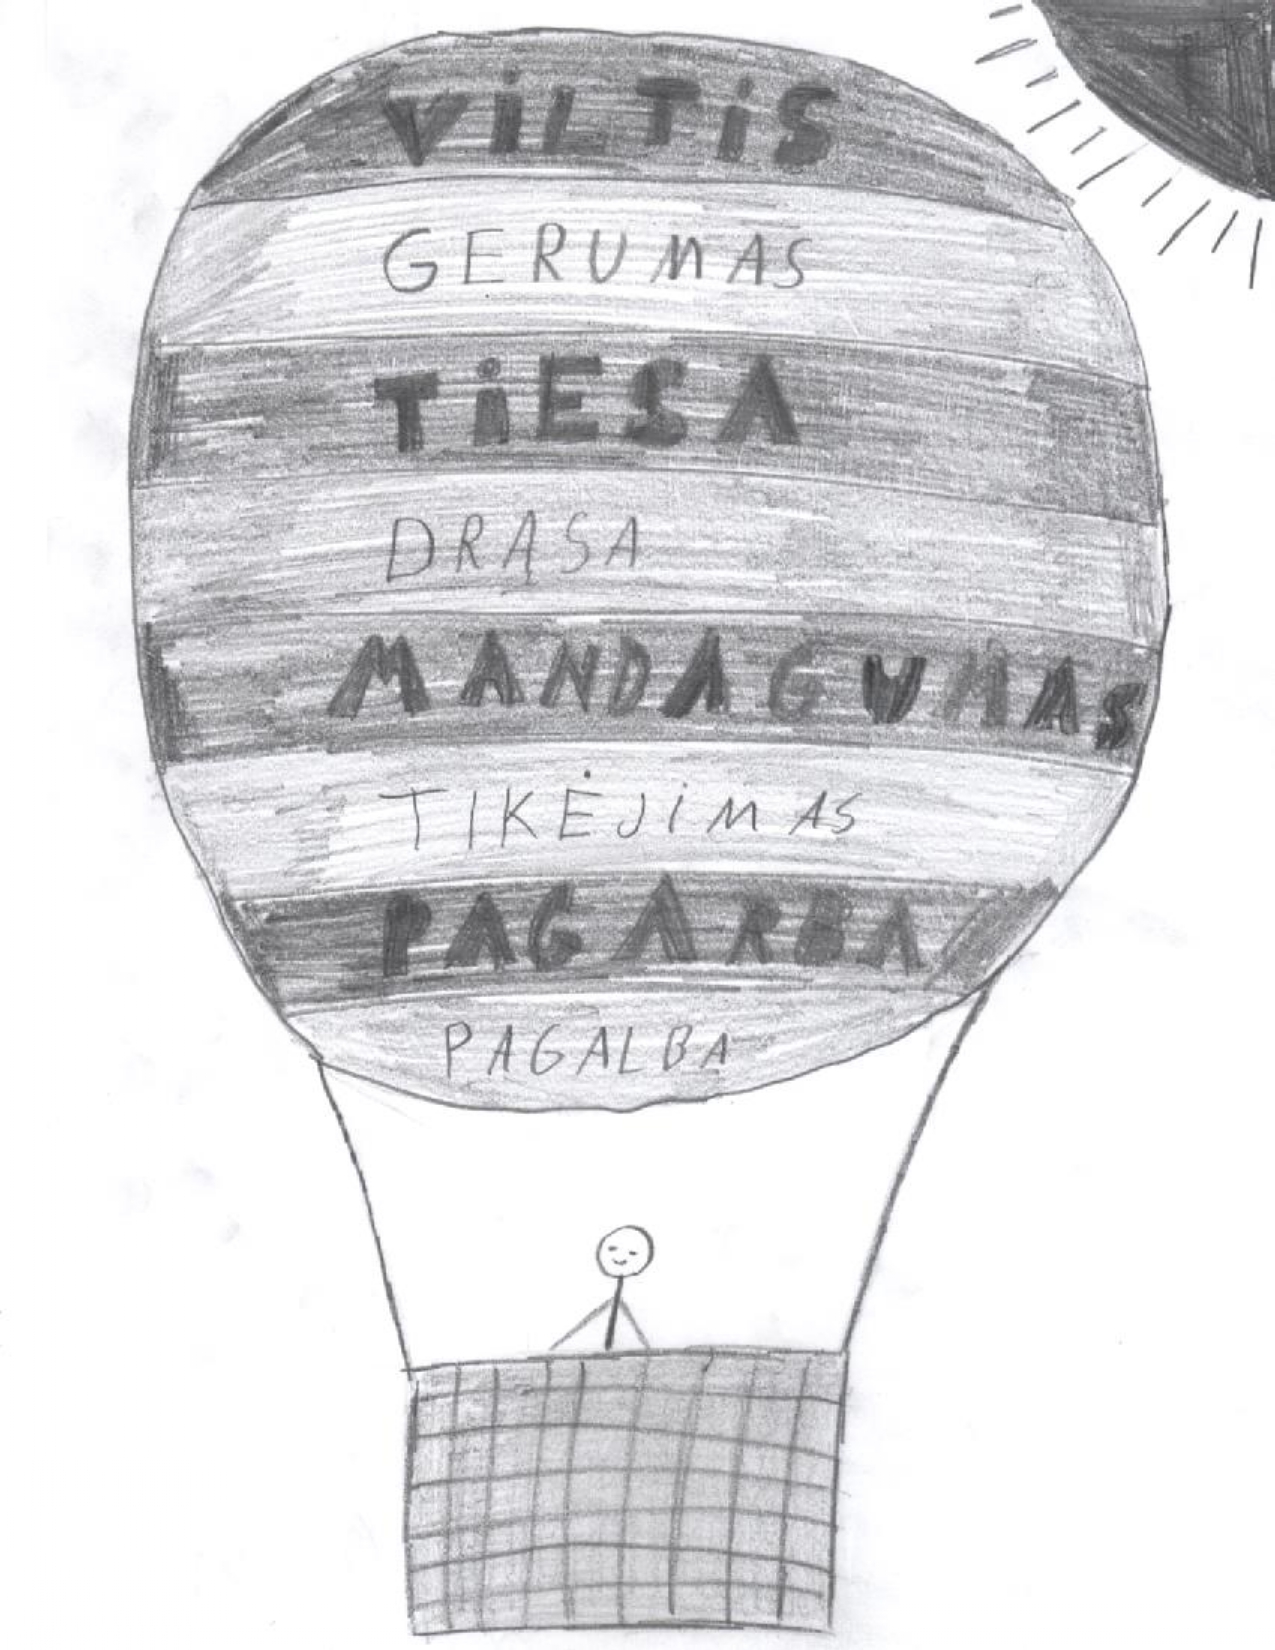 ViLTiS
GERUMAS
TiESA
DRĄSA
MANDAGUMAS
TIKĖJiMAS
PAGARBA
PAGALBA